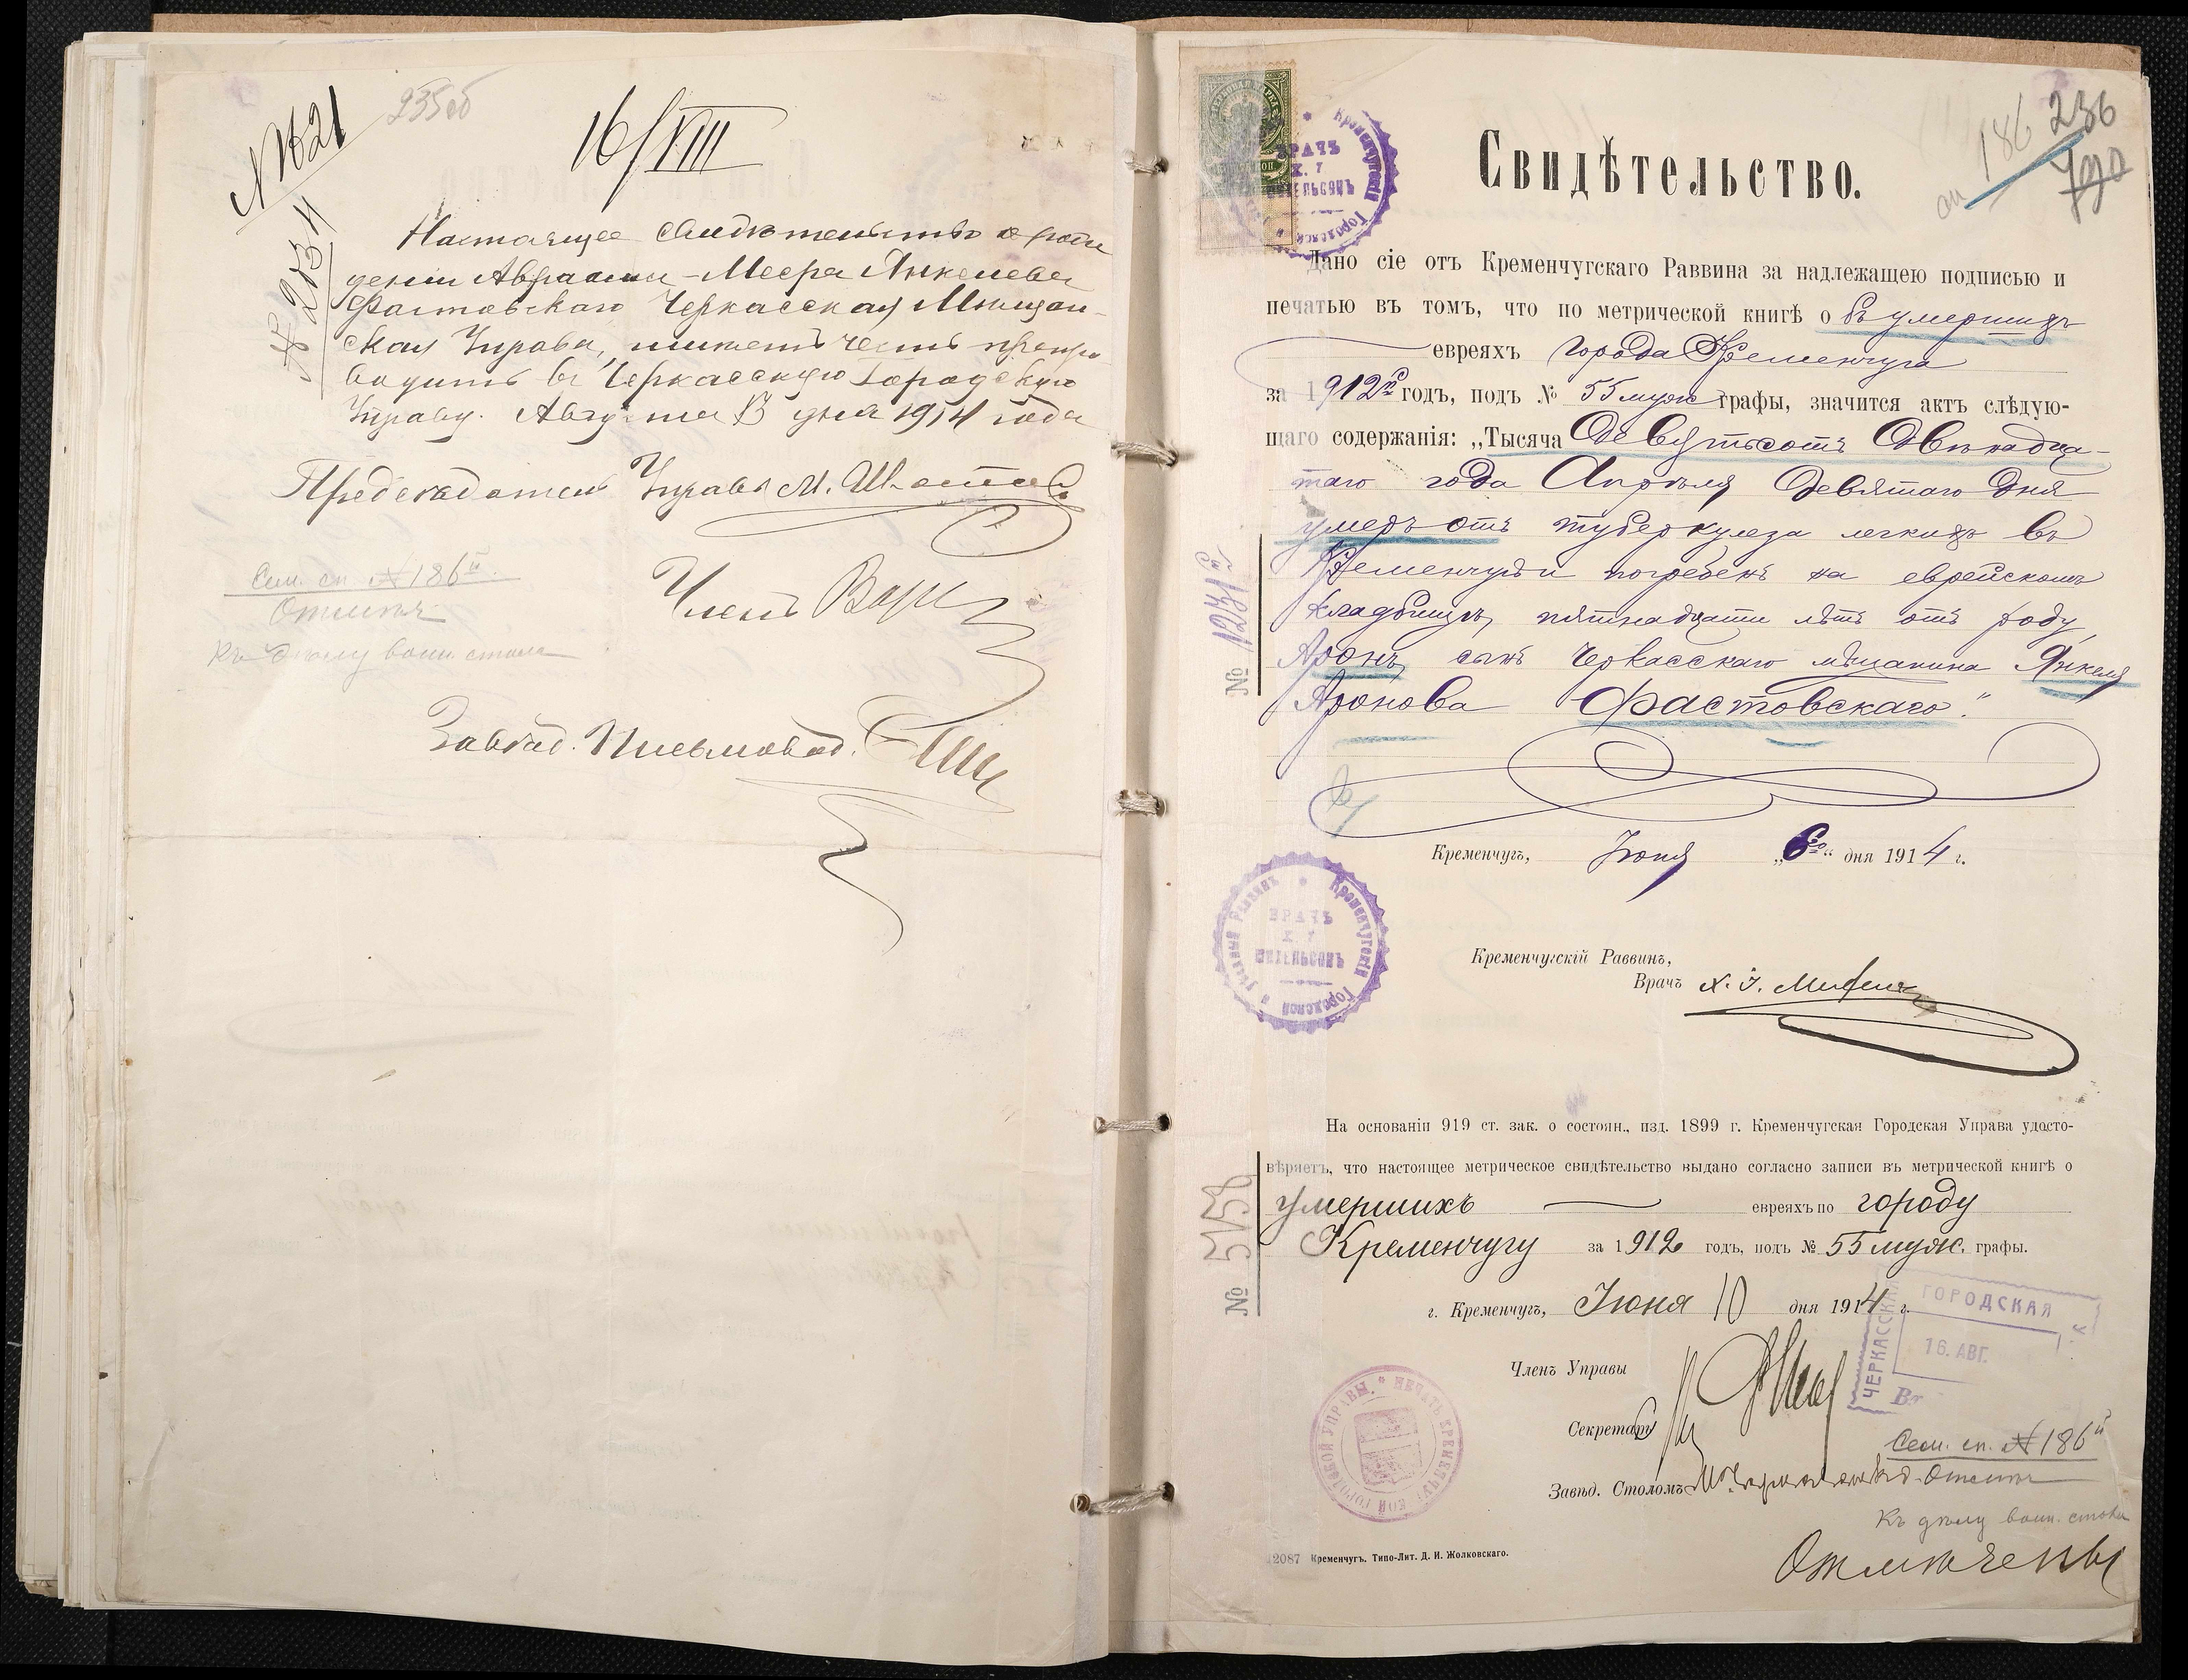 235об
N 1621
16/VIII
№ 2134
Настоящее свидѣтельство о рож
деніи Авраама-Меера Янкелева
Фастовскаго Черкасская Мѣщан-
ская Управа, имѣетъ честь препро
водить въ Черкасскую Городскую
Управу. Августа 13 дня 1914 года
Предсѣдатель Управы М.
Членъ
Сем. сп. № 186й.
Отмѣт.
Къ дѣлу воин. стола
Завѣд. Письмовод.
186 236
790
Свидѣтельство.
Дано сіе отъ Кременчугскаго Раввина за надлежащею подписью и
печатью въ томъ, что по метрической книгѣ о въ умершихъ
евреяхъ города Кременчуга
за 1912й годъ, подъ № 55 муж графы, значится актъ слѣдую-
щаго содержанія: „Тысяча Девятьсотъ Двѣнадца-
таго года Апрѣля Девятаго дня
умеръ отъ туберкулеза легкихъ въ
Кременчугѣ и погребенъ на еврейскомъ
кладбищѣ, пятнадцати лѣтъ отъ роду,
Аронъ, сынъ Черкасскаго мѣщанина Янкеля
Аронова Фастовскаго."
№ 1231
Кременчугъ, Іюня „6го" дня 1914 г.
Кременчугскій Городской и уѣздный Раввинъ
ВРАЧЪ
Х. І.
МИХЕЛЬСОНЪ
Кременчугскій Раввинъ,
Врачъ Х. І.
На основаніи 919 ст. зак. о состоян., изд. 1899 г. Кременчугская Городская Управа удосто-
вѣряетъ, что настоящее метрическое свидѣтельство выдано согласно записи въ метрической книгѣ о
умершихъ евреяхъ по городу
Кременчугу за 1912 годъ, подъ № 55 муж. графы.
№ 5158
г. Кременчугъ, Іюня 10 дня 1914 г.
ЧЕРКАССКАЯ ГОРОДСКАЯ
16. АВГ.
Вх
Членъ Управы
Секретарь
Завѣд. Столомъ
ПЕЧАТЬ КРЕМЕНЧУГСКОЙ ГОРОДСКОЙ УПРАВЫ.
Сем. сп. № 186й
Отмѣт.
Къ дѣлу воин. стола
Отмѣчены
12087 Кременчугъ. Типо-Лит. Д. И. Жолковскаго.